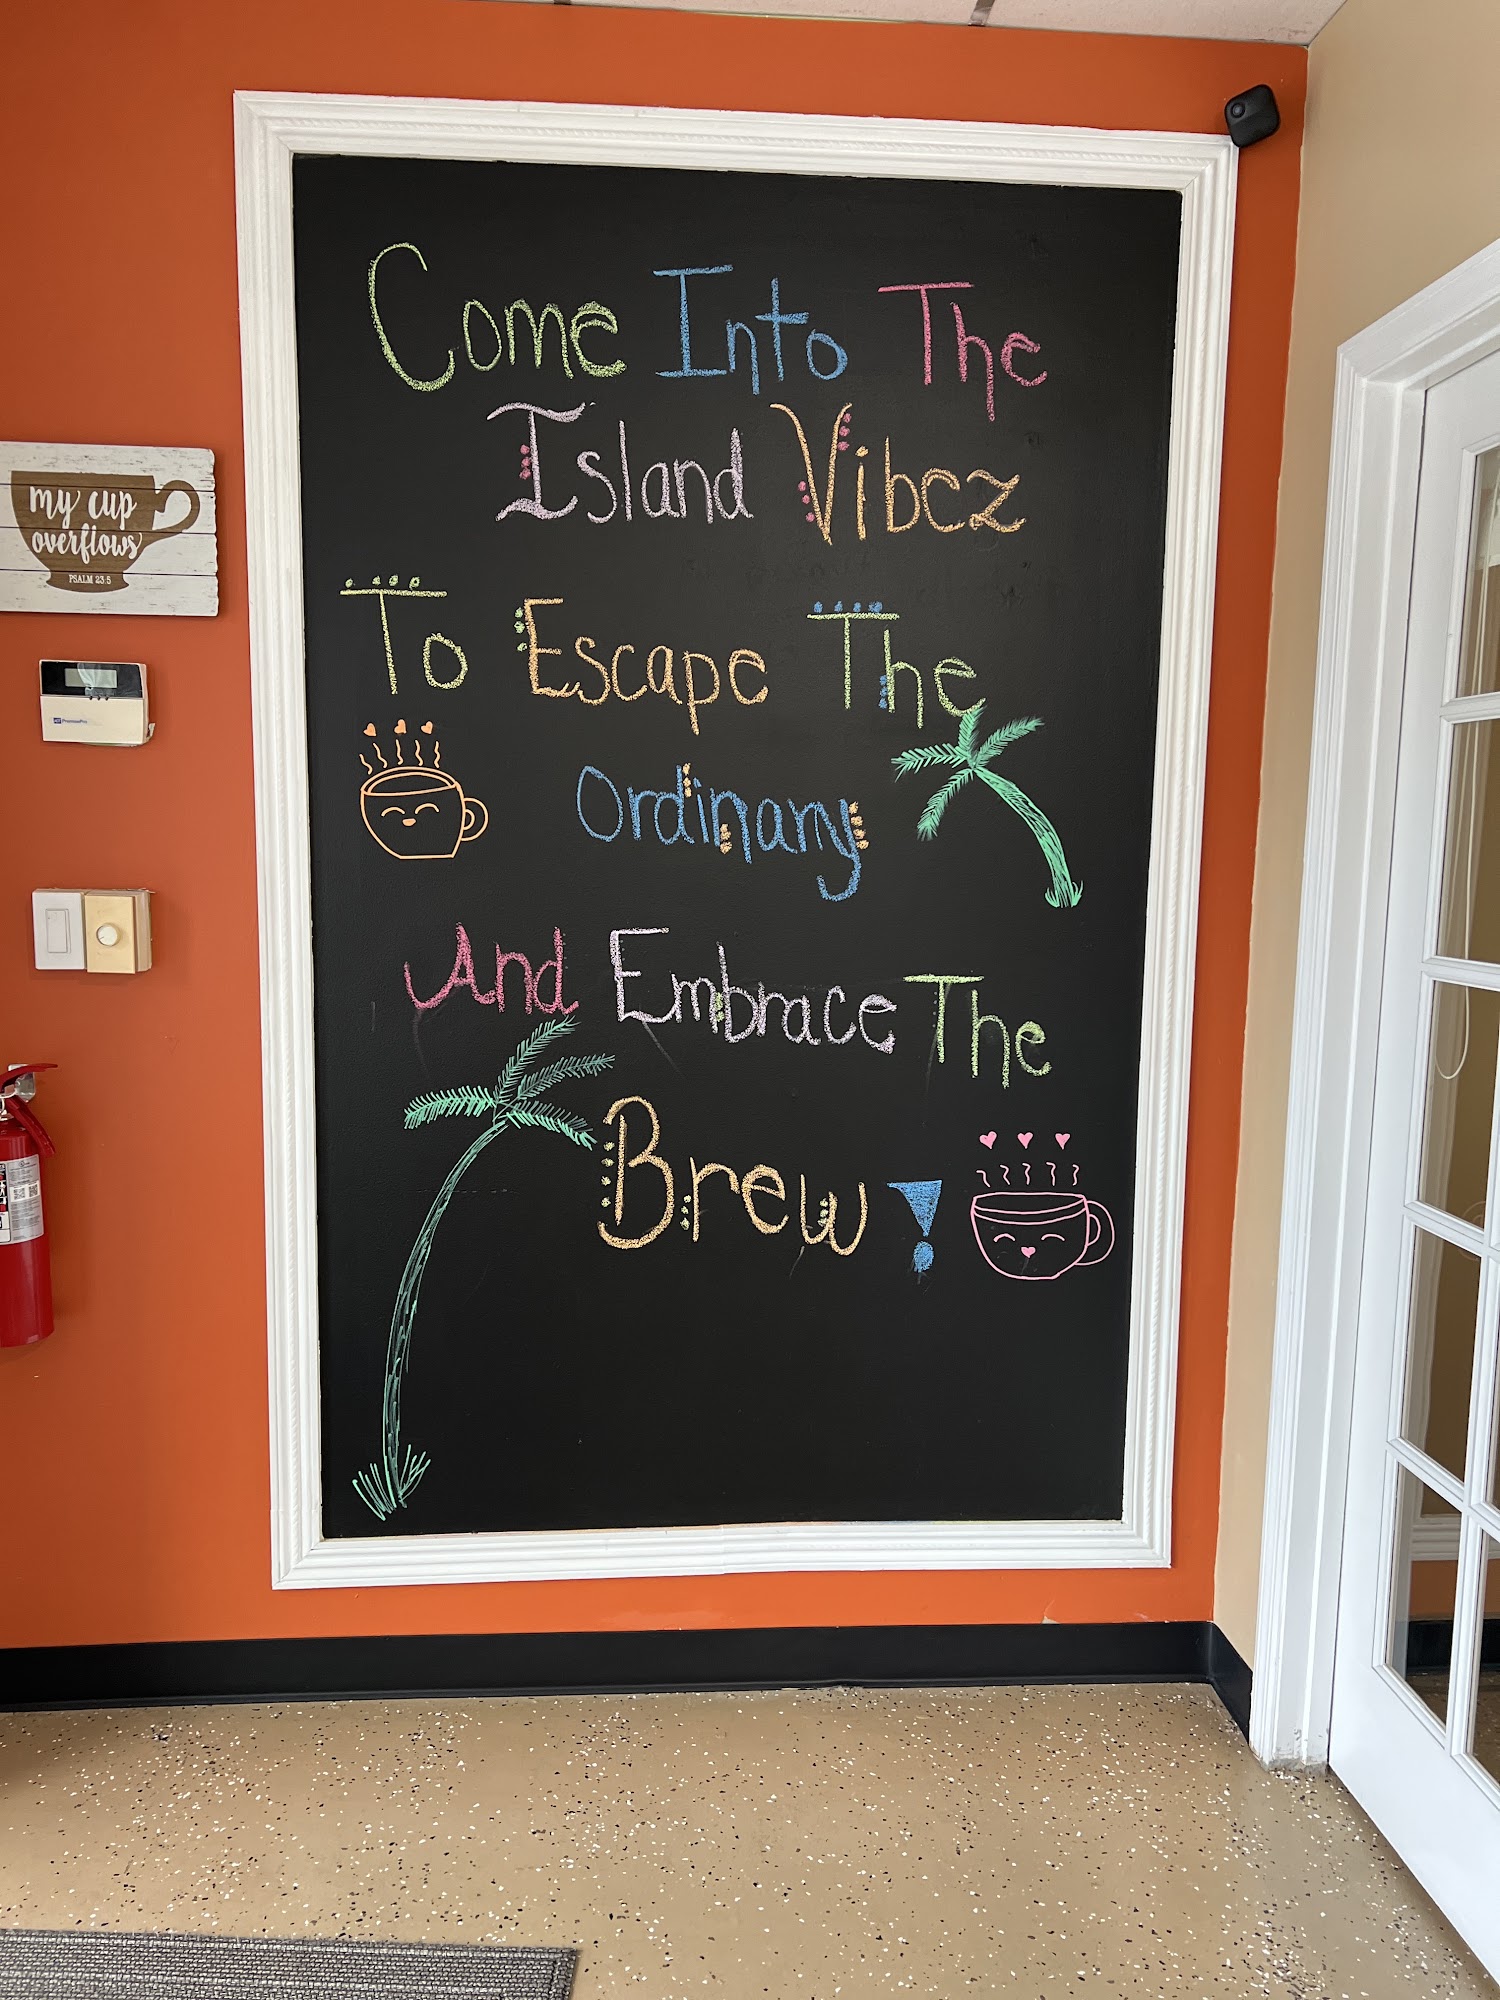 Come Into The
Island Vibez
To Escape The
Ordinary
And Embrace The
Brew!
my cup
overflows
PSALM 23:5